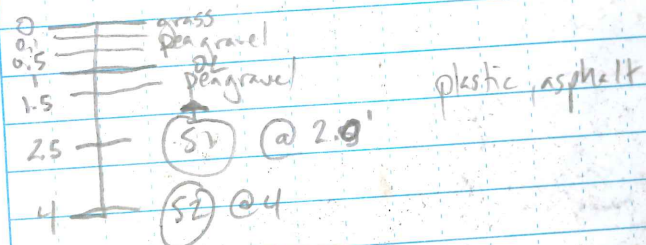 0 grass
0.1 pea gravel
0.5
1 pea gravel
1.5 plastic, asphalt
2.5 S1 @ 2.0'
4 S2 @ 4